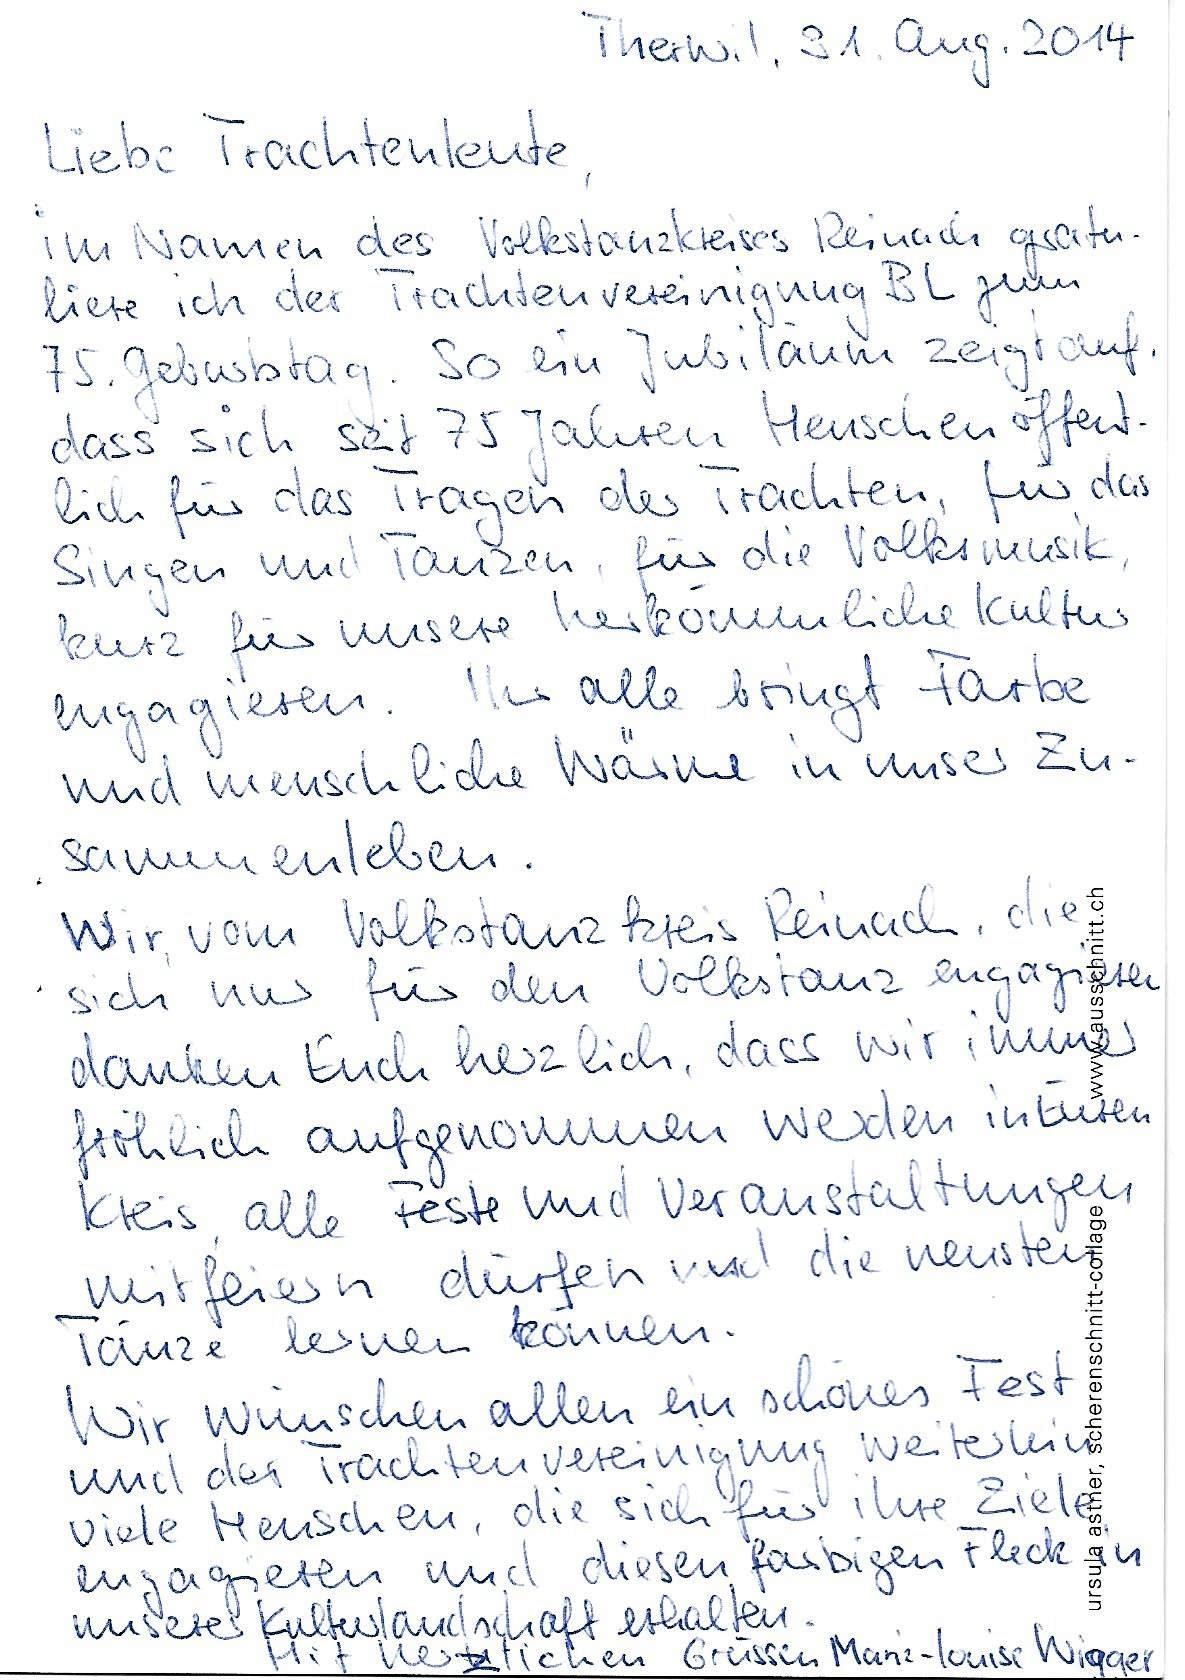 Therwil, 31. Aug. 2014
Liebe Trachtenleute,
im Namen des Volkstanzkreises Reinach gratu-
liere ich der Trachtenvereinigung BL zum
75. Geburtstag. So ein Jubiläum zeigt auf,
dass sich seit 75 Jahren Menschen öffent-
lich für das Tragen der Trachten, für das
Singen und Tanzen, für die Volksmusik,
kurz für unsere herkömmliche Kultur
engagieren. Ihr alle bringt Farbe
und menschliche Wärme in unser Zu-
sammenleben.
Wir, vom Volkstanzkreis Reinach, die
sich nur für den Volkstanz engagieren
danken Euch herzlich, dass wir immer
fröhlich aufgenommen werden in Euren
Kreis, alle Feste und Veranstaltungen
mitfeiern dürfen und die neusten
Tänze lernen können.
Wir wünschen allen ein schönes Fest
und der Trachtenvereinigung weiterhin
viele Menschen, die sich für ihre Ziele
engagieren und diesen farbigen Fleck in
unserer Kulturlandschaft erhalten.
Mit herzlichen Grüssen Marie-Louise Wigger
ursula astner, scherenschnitt-collage www.ausschnitt.ch